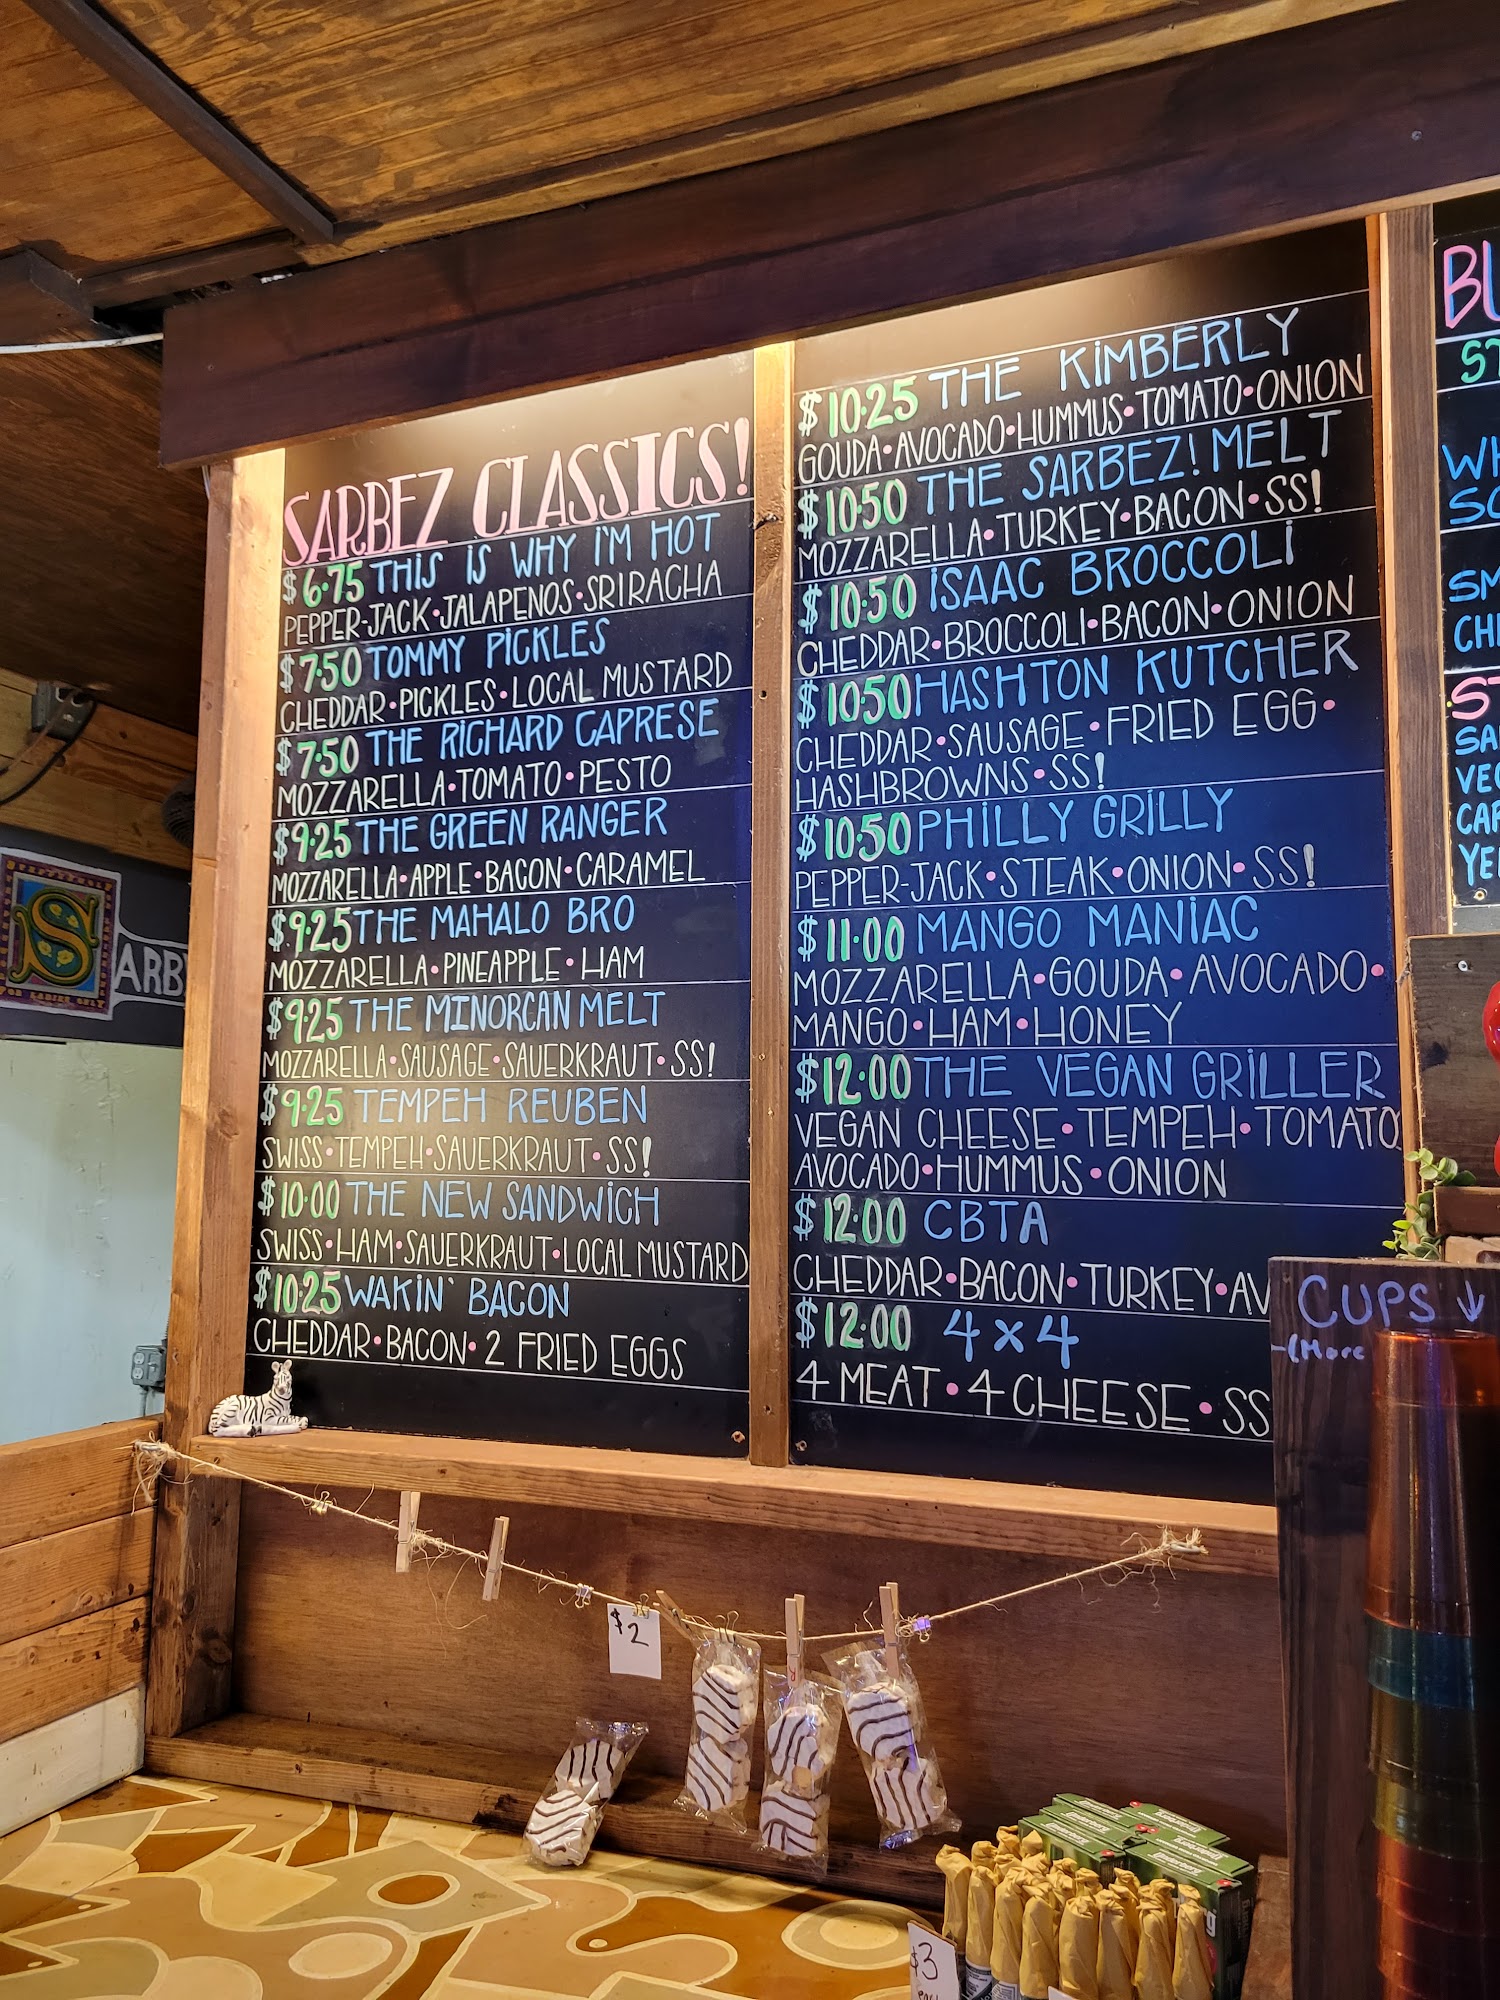 SARBEZ CLASSICS!
$6.75 THIS IS WHY I'M HOT
PEPPER-JACK•JALAPENOS•SRIRACHA
$7.50 TOMMY PICKLES
CHEDDAR•PICKLES•LOCAL MUSTARD
$7.50 THE RICHARD CAPRESE
MOZZARELLA•TOMATO•PESTO
$9.25 THE GREEN RANGER
MOZZARELLA•APPLE•BACON•CARAMEL
$9.25 THE MAHALO BRO
MOZZARELLA•PINEAPPLE•HAM
$9.25 THE MINORCAN MELT
MOZZARELLA•SAUSAGE•SAUERKRAUT•SS!
$9.25 TEMPEH REUBEN
SWISS•TEMPEH•SAUERKRAUT•SS!
$10.00 THE NEW SANDWICH
SWISS•HAM•SAUERKRAUT•LOCAL MUSTARD
$10.25 WAKIN' BACON
CHEDDAR•BACON•2 FRIED EGGS
$10.25 THE KIMBERLY
GOUDA•AVOCADO•HUMMUS•TOMATO•ONION
$10.50 THE SARBEZ! MELT
MOZZARELLA•TURKEY•BACON•SS!
$10.50 ISAAC BROCCOLI
CHEDDAR•BROCCOLI•BACON•ONION
$10.50 HASHTON KUTCHER
CHEDDAR•SAUSAGE•FRIED EGG•
HASHBROWNS•SS!
$10.50 PHILLY GRILLY
PEPPER-JACK•STEAK•ONION•SS!
$11.00 MANGO MANIAC
MOZZARELLA•GOUDA•AVOCADO•
MANGO•HAM•HONEY
$12.00 THE VEGAN GRILLER
VEGAN CHEESE•TEMPEH•TOMATO
AVOCADO•HUMMUS•ONION
$12.00 CBTA
CHEDDAR•BACON•TURKEY•AV
$12.00 4x4
4 MEAT•4 CHEESE•SS
BU
ST
WH
SO
SM
CHE
ST
SA
VEG
CAR
YEL
S
ARB
CUPS ↓
(More
$2
$3